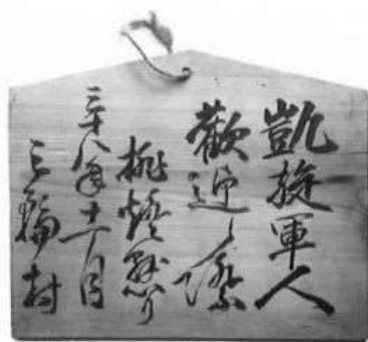 凱旋軍人
歓迎ノ際
桃燈懸リ
三十八年十二月
三輪村